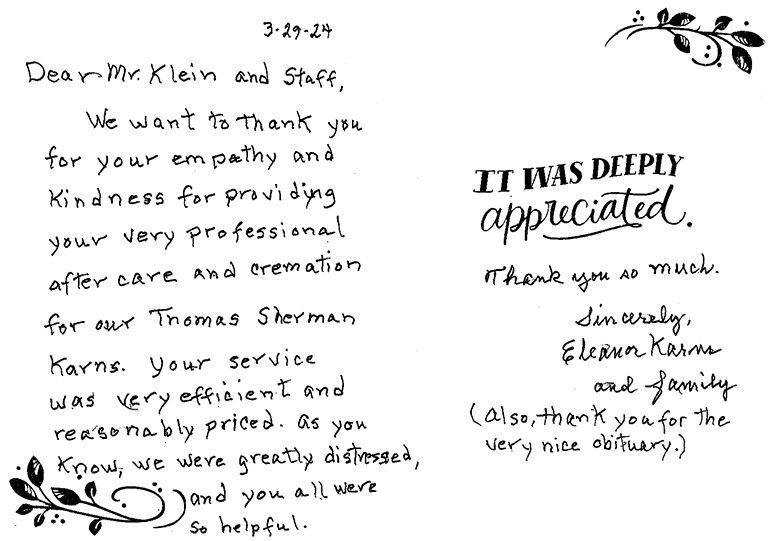 3-29-24
Dear Mr. Klein and Staff,
We want to thank you
for your empathy and
Kindness for providing
your very professional
after care and cremation
for our Thomas Sherman
Karns. your service
was very efficient and
reasonably priced. as you
Know, we were greatly distressed,
and you all were
so helpful.
IT WAS DEEPLY
appreciated.
Thank you so much.
Sincerely,
Eleanor Karns
and family
(also, thank you for the
very nice obituary.)